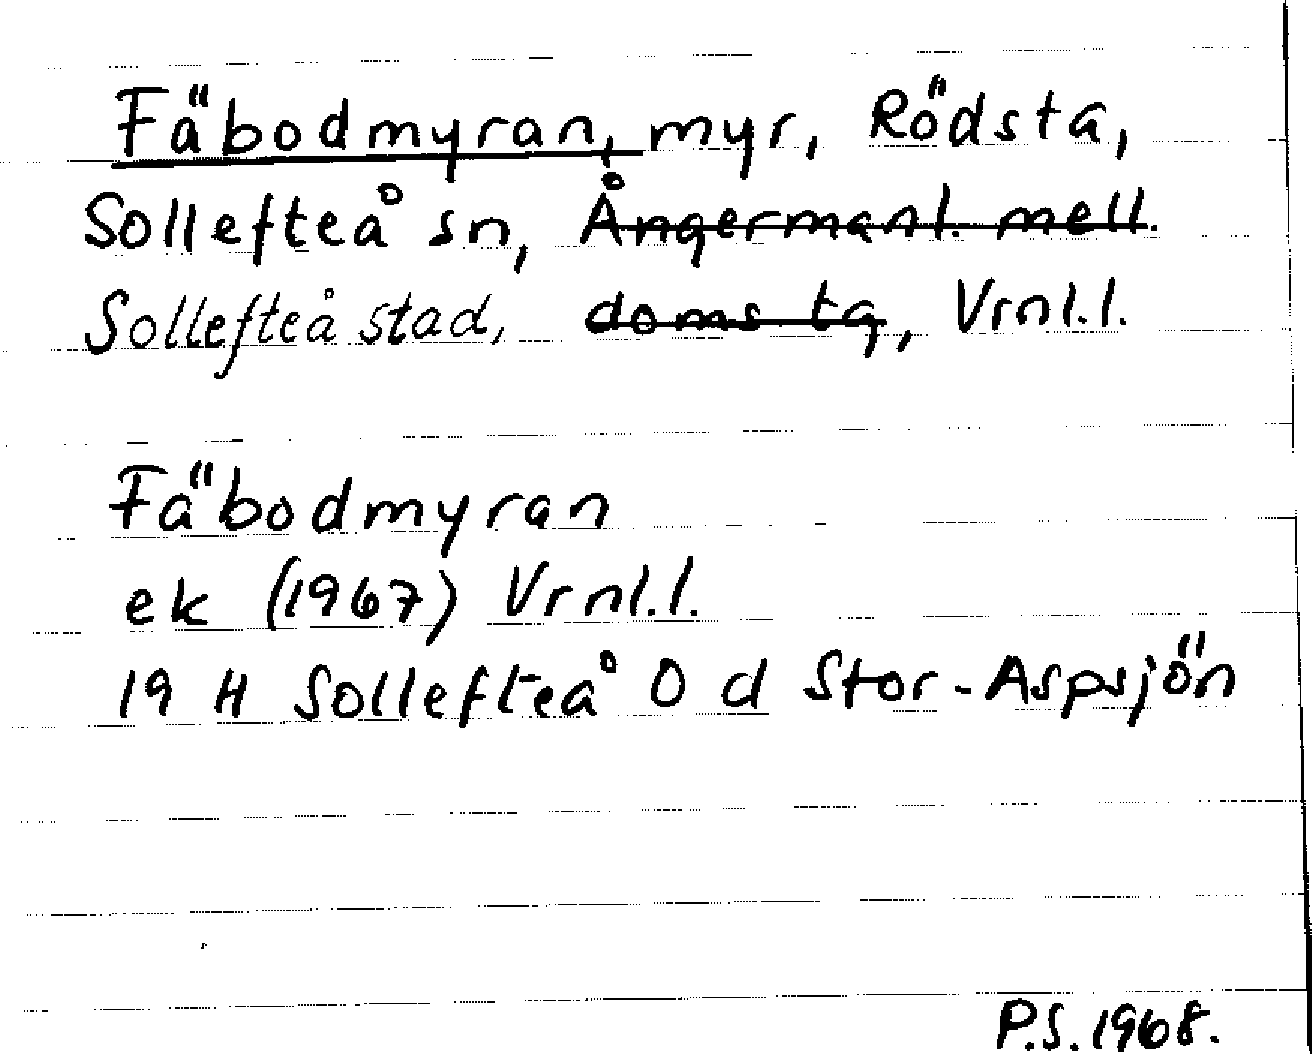 Fäbodmyran, myr, Rödsta,
Sollefteå sn, Ångermanl. mell.
Sollefteå stad, doms tg, Vrnl.l.
Fäbodmyran
ek (1967) Vrnl.l.
19 H Sollefteå O d Stor-Aspsjön
P.S. 1968.